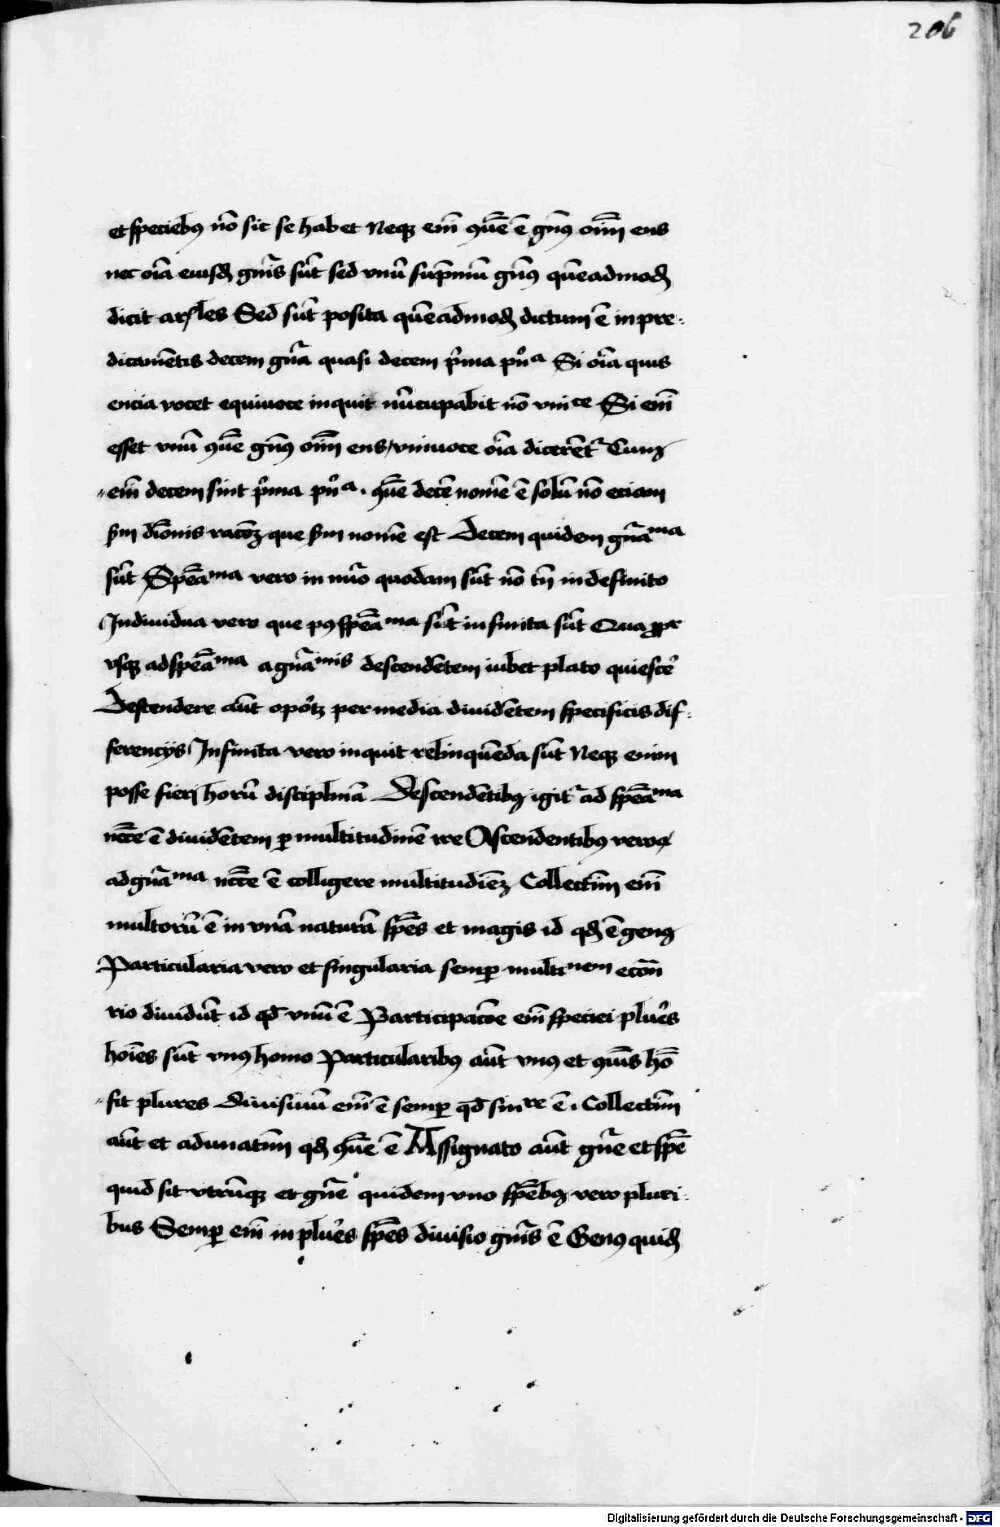 206
et speciebꝰ nō sic se habet Neqꝫ em̄ cōe ē gn̄ꝰ oīm ens
nec oīa eiusdꝫ gn̄is sūt sed vnū sup̄mū gn̄ꝰ quēadmodꝫ
dicit ar̄stles Sed sūt posita quēadmodꝫ dictum ē in pre-
dicamētis decem gn̄a quasi decem p̄ma pn̄ᵃ Si oīa quis
encia vocet equiuoce inquit nūcupabit nō vniᶜᵉ Si em̄
esset vnū cōe gn̄ꝰ oīm ens vniuoce oīa dicerēt᷑ Cum
em̄ decem sint p̄ma pn̄ᵃ . cōe decē nomē ē solū nō eciam
sm̄ dīonis racōꝫ que sm̄ nomē est Decem quidem gn̄āᵐᵃ
sūt Spēāᵐᵃ vero in nūo quodam sūt nō tn̄ indefinito
Indiuidua vero que pꝰ spēāᵐᵃ sūt infinita sūt Quapp̄
vsqꝫ ad spēāᵐᵃ a gn̄āᵐⁱˢ descendētem iubet plato quiescē
Descendere aūt opōꝫ per media diuidētem specificis dif-
ferencijs Infinita vero inquit relinquēda sūt Neqꝫ enim
posse fieri horū disciplinā Descendētibꝰ igit᷑ ad spēāᵐᵃ
nc̄ce ē diuidētem ꝑ multitudinē ire Ascendentibꝰ vero
ad gn̄āᵐᵃ nc̄ce ē colligere multitudiēꝫ Collectiū em̄
multorū ē in vnā naturā sp̄es et magis id qdꝫ ē genꝰ
Particularia vero et singularia semꝑ multiⁿᵉᵐ econ̄
rio diuidūt id qd̄ vnū ē Participacōe em̄ speciei plūes
hoīes sūt vnꝰ homo Particularibꝰ aūt vnꝰ et cōis hō
fit plures Diuisiuū em̄ ē semꝑ qd̄ sinʳᵉ ē . Collectiū
aūt et adunatiū qdꝫ cōe ē Assignato aūt gn̄e et spē
quid sit vtrūqꝫ et gn̄e quidem vno spēbꝰ vero pluri-
bus Semꝑ em̄ in plūes sp̄es diuisio gn̄is ē Genꝰ quidꝫ
Digitalisierung gefördert durch die Deutsche Forschungsgemeinschaft - DFG